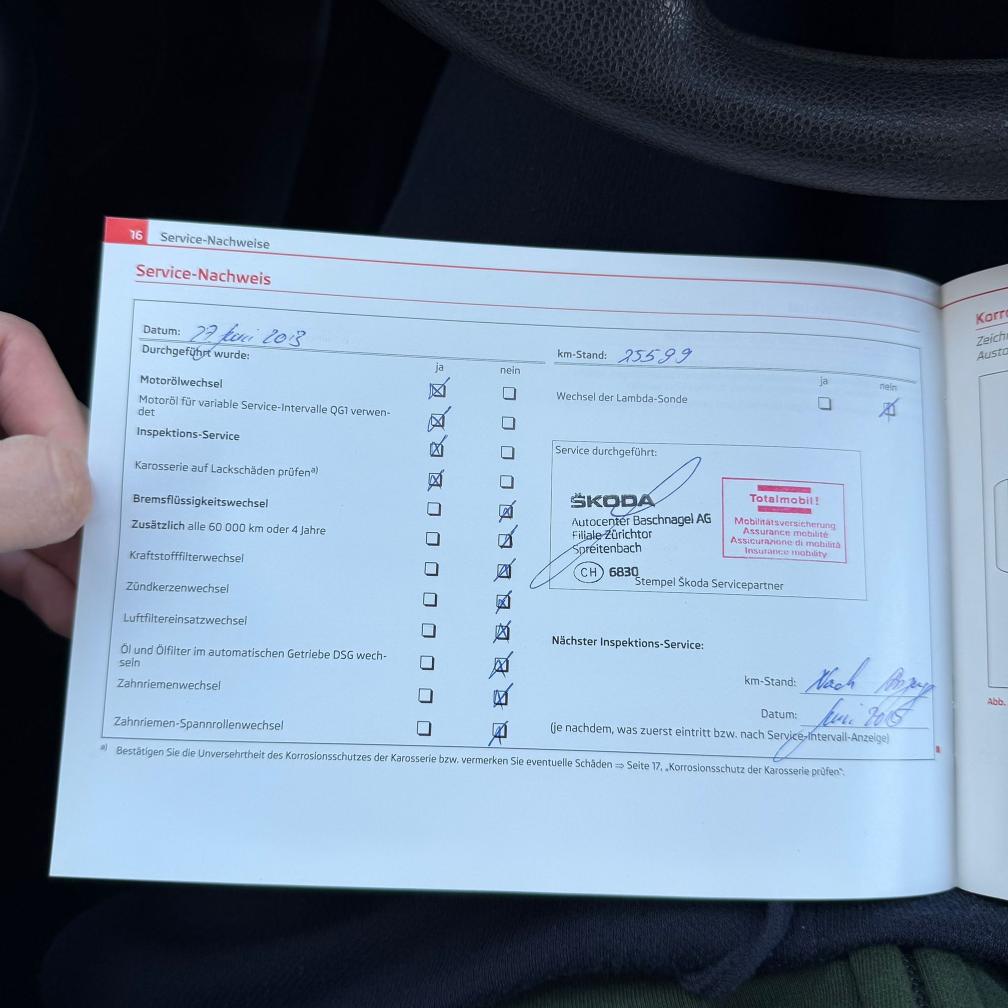 16 Service-Nachweise
Service-Nachweis
Datum: 27 Juni 2013
km-Stand: 25599
Durchgeführt wurde:
ja nein
ja nein
Motorölwechsel
Wechsel der Lambda-Sonde
Motoröl für variable Service-Intervalle QG1 verwen-
det
Inspektions-Service
Karosserie auf Lackschäden prüfen a)
Bremsflüssigkeitswechsel
Zusätzlich alle 60 000 km oder 4 Jahre
Kraftstofffilterwechsel
Zündkerzenwechsel
Luftfiltereinsatzwechsel
Öl und Ölfilter im automatischen Getriebe DSG wech-
seln
Zahnriemenwechsel
Zahnriemen-Spannrollenwechsel
Service durchgeführt:
ŠKODA
Autocenter Baschnagel AG
Filiale Zürichtor
Spreitenbach
CH 6830
Totalmobil!
Mobilitätsversicherung
Assurance mobilité
Assicurazione di mobilità
Insurance mobility
Stempel Škoda Servicepartner
Nächster Inspektions-Service:
km-Stand: Nach
Datum: Juni 2015
(je nachdem, was zuerst eintritt bzw. nach Service-Intervall-Anzeige)
a) Bestätigen Sie die Unversehrtheit des Korrosionsschutzes der Karosserie bzw. vermerken Sie eventuelle Schäden ⇒ Seite 17, „Korrosionsschutz der Karosserie prüfen“.
Abb.